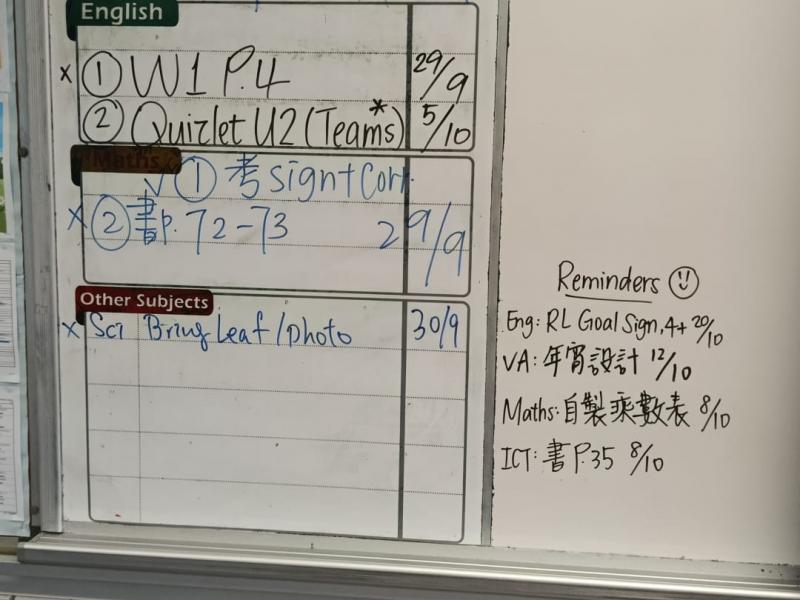 English
x ① W1 P.4 29/9
② Quizlet U2 (Teams*) 5/10
Maths
√ ① 考 sign + Corr.
x ② 書P. 72-73 29/9
Other Subjects
x Sci Bring Leaf / photo 30/9
Reminders ☺
Eng: RL Goal Sign, 4+ 20/10
VA: 年宵設計 12/10
Maths: 自製乘數表 8/10
ICT: 書 P.35 8/10